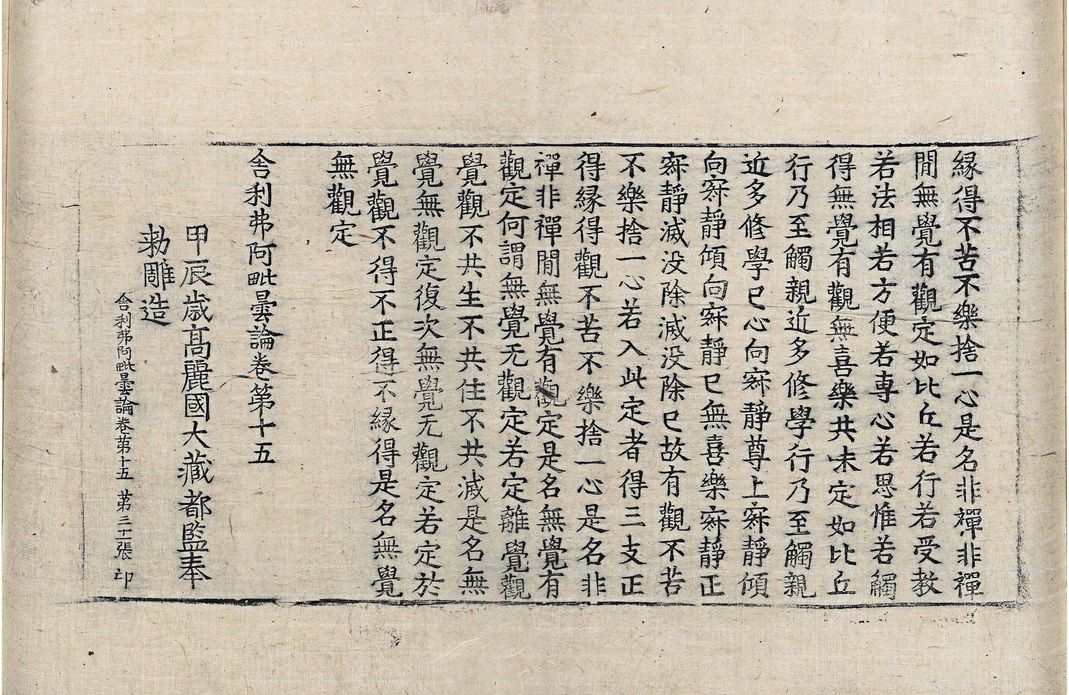 縁得不苦不樂捨一心是名非禪非禪
閒無覺有觀定如比丘若行若受教
若法相若方便若專心若思惟若觸
得無覺有觀無喜樂共未定如比丘
行乃至觸親近多修學行乃至觸親
近多修學已心向㝛靜尊上㝛靜傾
向㝛靜傾向㝛靜已無喜樂㝛靜正
㝛靜滅没除滅没除已故有觀不苦
不樂捨一心若入此定者得三支正
得縁得觀不苦不樂捨一心是名非
禪非禪閒無覺有觀定是名無覺有
觀定何謂無覺无觀定若定離覺觀
覺觀不共生不共住不共滅是名無
覺無觀定復次無覺无觀定若定於
覺觀不得不正得不縁得是名無覺
無觀定
舍利弗阿毗曇論卷第十五
甲辰歲高麗國大藏都監奉
勑雕造
舍利弗阿毗曇論卷第十五 第三十一張 印